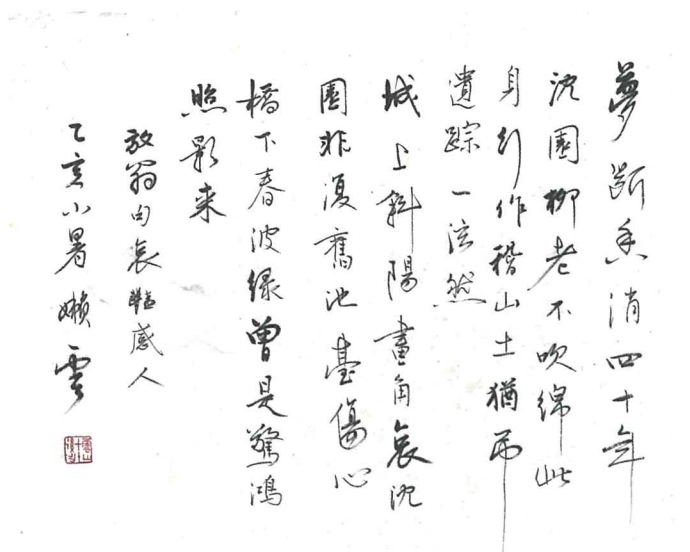 夢斷香消四十年
沈園柳老不吹綿此
身行作稽山土猶弔
遺踪一泫然
城上斜陽畫角哀沈
園非復舊池臺傷心
橋下春波綠曾是驚鴻
照影来
放翁句哀豔感人
乙亥小暑嬾雲